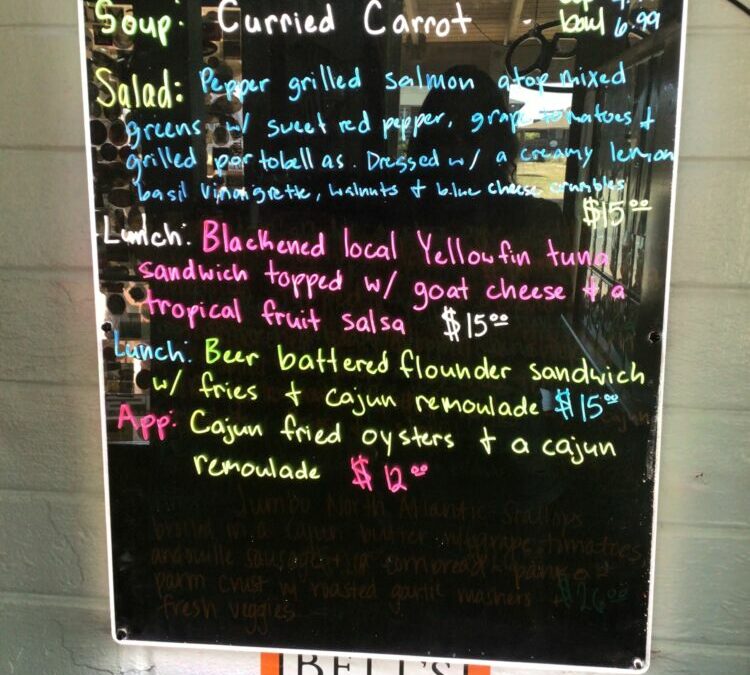 Soup: Curried Carrot - bowl 6.99
Salad: Pepper grilled salmon atop mixed
greens w/ sweet red pepper, grape tomatoes +
grilled portobellas. Dressed w/ a creamy lemon
basil vinaigrette, walnuts + blue cheese crumbles
$15.00
Lunch: Blackened local Yellowfin tuna
sandwich topped w/ goat cheese + a
tropical fruit salsa $15.00
Lunch: Beer battered flounder sandwich
w/ fries + cajun remoulade $15.00
App: Cajun fried oysters + a cajun
remoulade $12.00
Jumbo North Atlantic Scallops
broiled in a cajun butter w/ grape tomatoes,
andouille sausage + a cornbread - panko +
parm crust w/ roasted garlic mashers + $26.00
fresh veggies
BELL'S